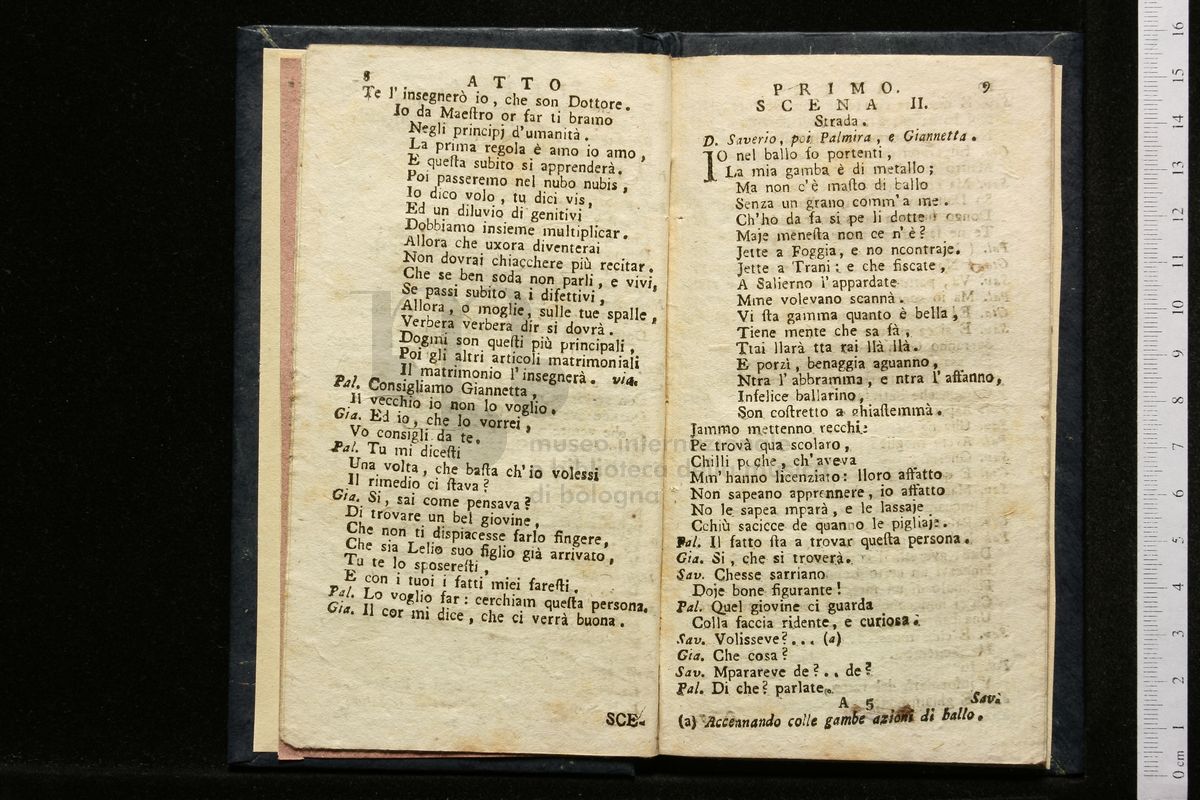 8
ATTO
Te l' insegnerò io, che son Dottore.
Io da Maeſtro or far ti bramo
Negli principj d'umanità.
La prima regola è amo io amo,
E queſta subito si apprenderà.
Poi passeremo nel nubo nubis,
Io dico volo, tu dici vis,
Ed un diluvio di genitivi
Dobbiamo insieme multiplicar.
Allora che uxora diventerai
Non dovrai chiacchere più recitar.
Che se ben soda non parli, e vivi,
Se passi subito a i difettivi,
Allora, o moglie, sulle tue spalle,
Verbera verbera dir si dovrà.
Dogmi son queſti più principali,
Poi gli altri articoli matrimoniali
Il matrimonio l'insegnerà. via.
Pal. Consigliamo Giannetta,
Il vecchio io non lo voglio.
Gia. Ed io, che lo vorrei,
Vo consigli da te.
Pal. Tu mi diceſti
Una volta, che baſta ch'io volessi
Il rimedio ci ſtava?
Gia. Si, sai come pensava?
Di trovare un bel giovine,
Che non ti dispiacesse farlo fingere,
Che sia Lelio suo figlio già arrivato,
Tu te lo sposereſti,
E con i tuoi i fatti miei fareſti.
Pal. Lo voglio far: cerchiam queſta persona.
Gia. Il cor mi dice, che ci verrà buona.
SCE-
PRIMO. 9
SCENA II.
Strada.
D. Saverio, poi Palmira, e Giannetta.
IO nel ballo fo portenti,
La mia gamba è di metallo;
Ma non c'è maſto di ballo
Senza un grano comm'a me.
Ch'ho da fa si pe li dotte
Maje meneſta non ce n'è?
Jette a Foggia, e no ncontraje.
Jette a Trani: e che fiscate,
A Salierno l'appardate
Mme volevano scannà.
Vi ſta gamma quanto è bella,
Tiene mente che sa fà,
Ttai llarà tta rai llà llà.
E porzì, benaggia aguanno,
Ntra l'abbramma, e ntra l'affanno,
Infelice ballarino,
Son coſtretto a ghiaſtemmà.
Jammo mettenno recchie
Pe trovà qua scolaro,
Chilli poche, ch'aveva
Mm'hanno licenziato: lloro affatto
Non sapeano apprennere, io affatto
No le sapea mparà, e le lassaje
Cchiù sacicce de quanno le pigliaje.
Pal. Il fatto ſta a trovar queſta persona.
Gia. Si, che si troverà.
Sav. Chesse sarriano
Doje bone figurante!
Pal. Quel giovine ci guarda
Colla faccia ridente, e curiosa.
Sav. Volisseve?... (a)
Gia. Che cosa?
Sav. Mparareve de?.. de?
Pal. Di che? parlate.
A 5 Sav.
(a) Accennando colle gambe azioni di ballo.
museo internazionale
e biblioteca della musica
di bologna